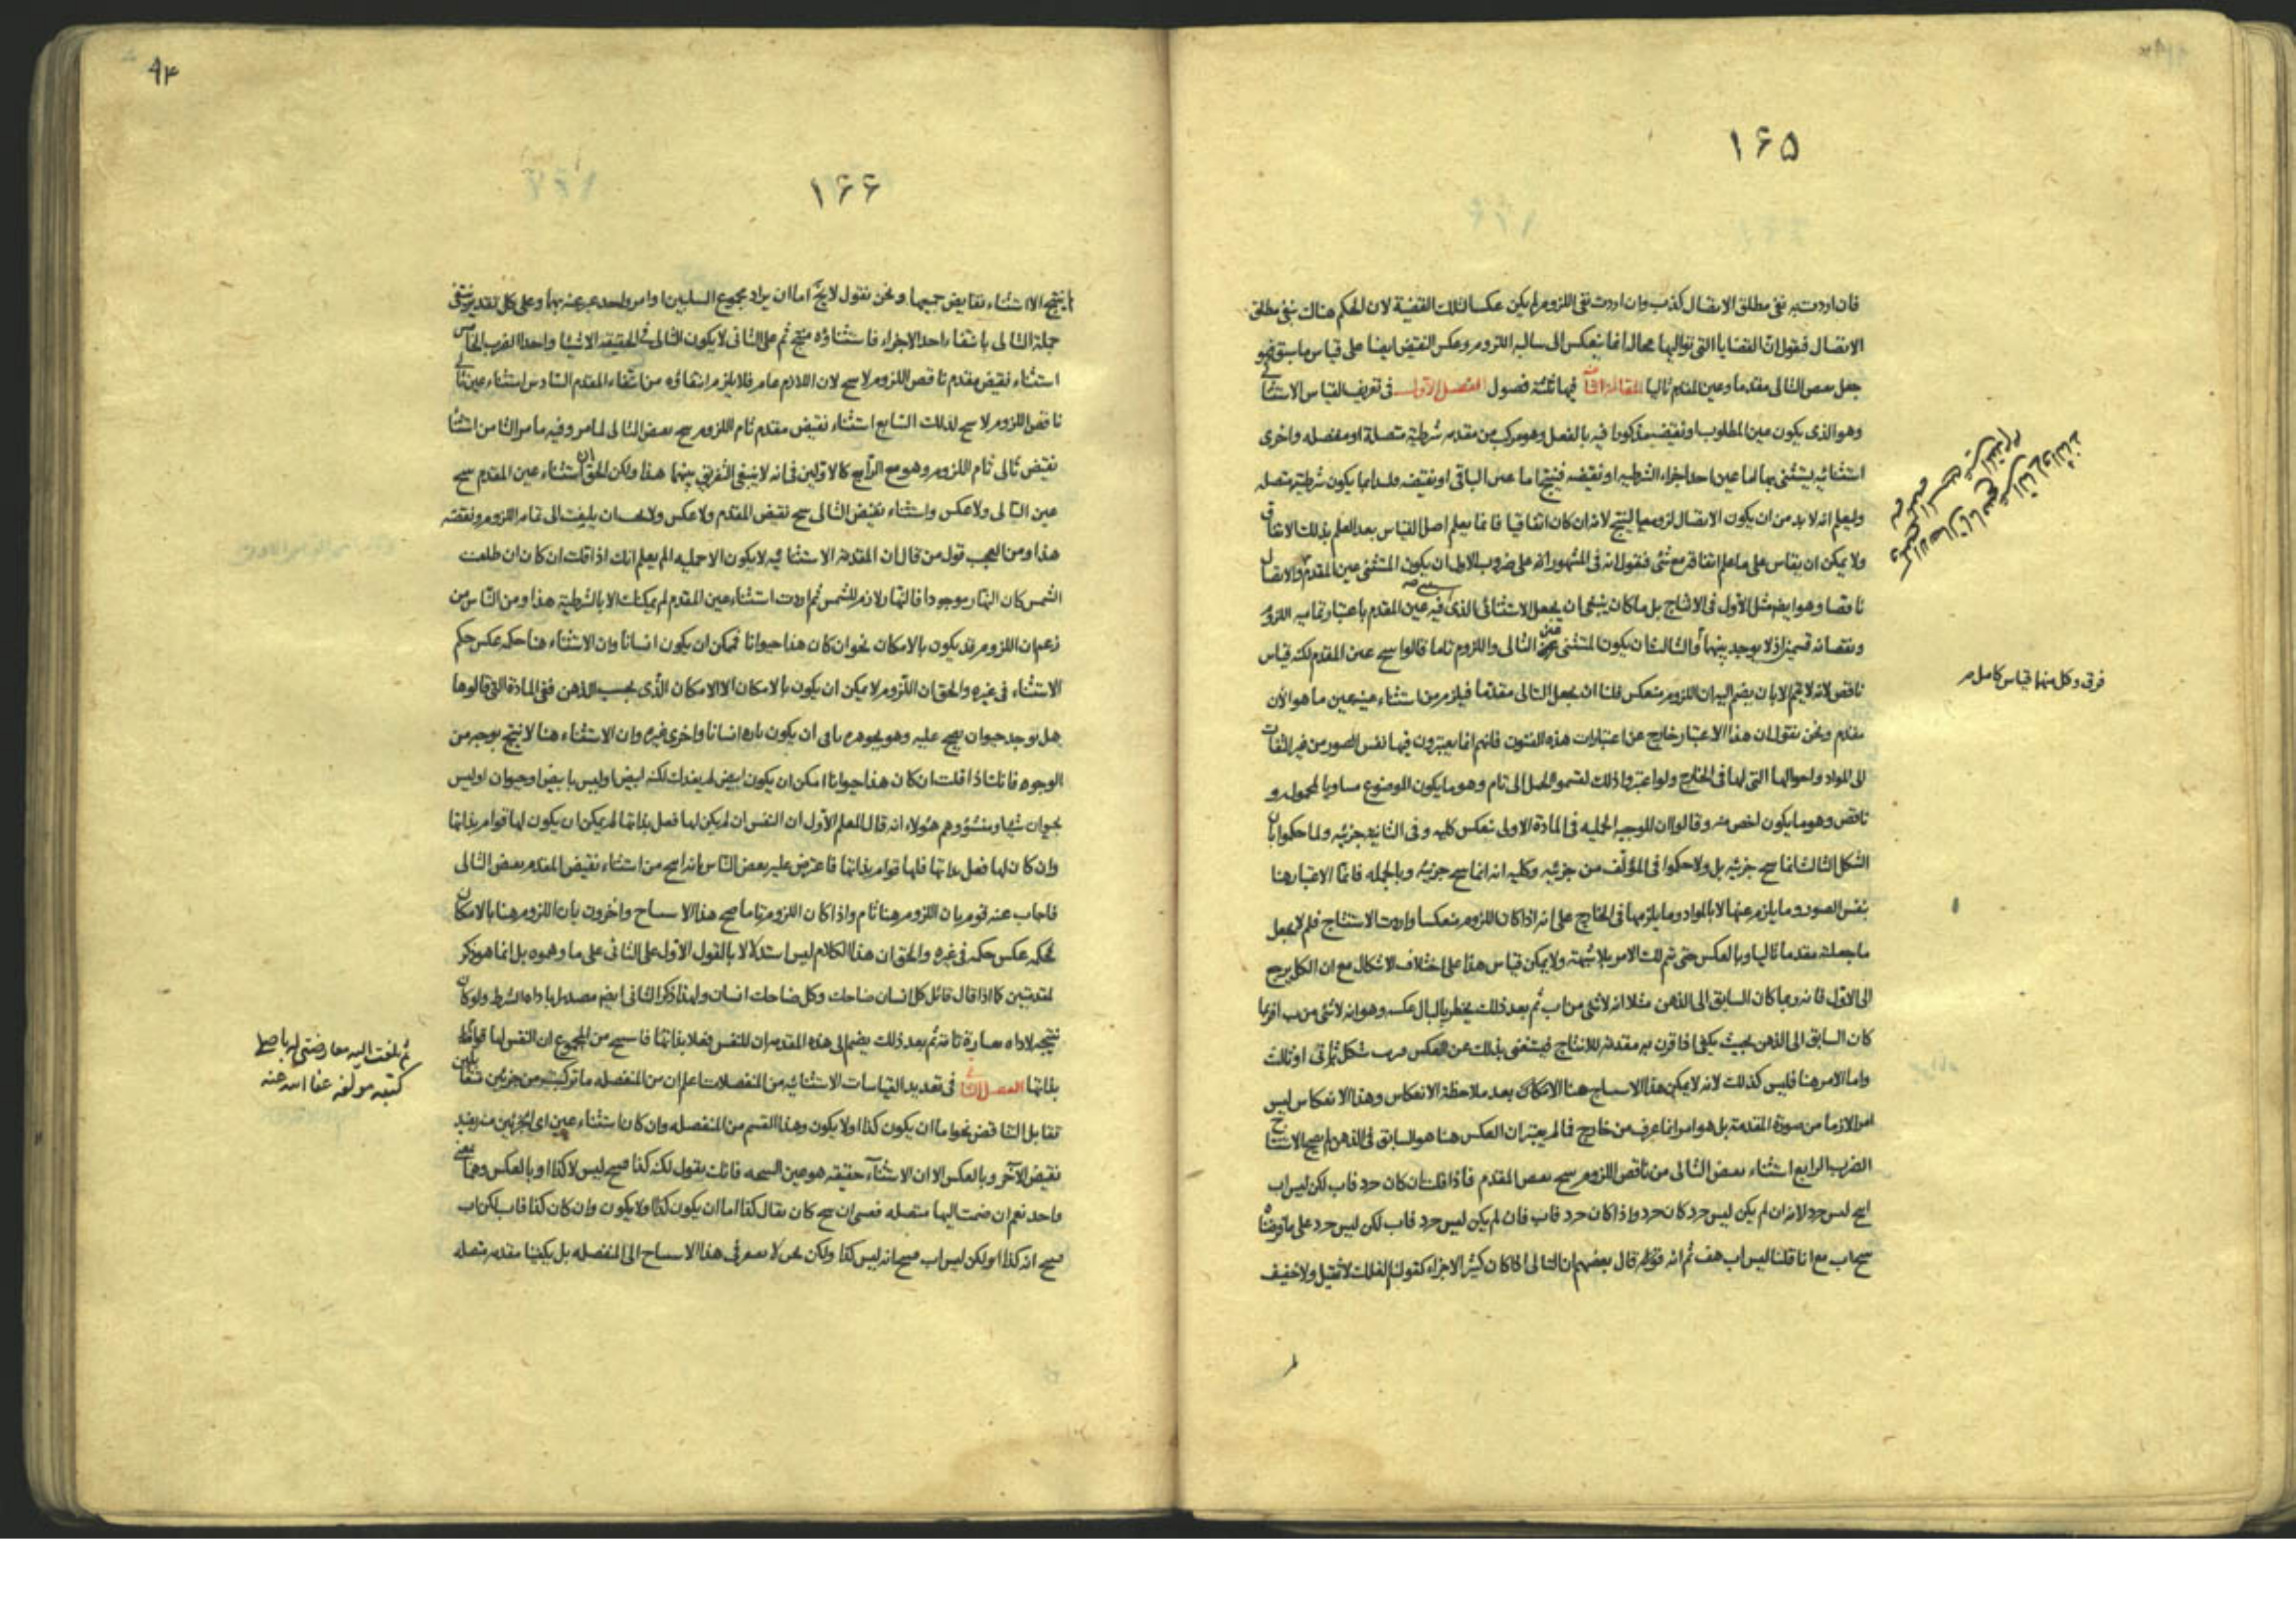 ۱۶۵
فان اردت به نفى مطلق الاتصال كذب وان اردت نفى اللزوم لم يكن عكسا لتلك القضية لان الحكم هناك بنفى مطلق
الاتصال فنقول ان القضايا التى تواليها محال انما تنعكس الى سالبة اللزوم وعكس النقيض ايضا على قياس ما سبق فهو
جعل نقيض التالى مقدما وعين المقدم تاليا المقالة فيها ثلثة فصول الفصل الاول فى تعريف القياس الاستثنائى
وهو الذى يكون عين المطلوب او نقيضه مذكورا فيه بالفعل وهو مركب من مقدمه شرطية متصلة او منفصله واخرى
استثنائيه يستثنى بها اما عين احد اجزاء الشرطيه او نقيضه فينتج اما عين الباقى او نقيضه فلندا بما يكون شرطيته متصله
وليعلم انه لا بد من ان يكون الاتصال لزوميا لينتج لانه ان كان اتفاقيا فانما يعلم اصل القياس بعد العلم بذلك الاتفاق
ولا يمكن ان يقاس على ما علم اتفاقه مع شئ فنقول انه فى المشهور انه على ضروب الاول ان يكون المستثنى عين المقدم والاتصال
ناقصا وهو ايضا مثل الاول فى الانتاج بل ما كان ينبغى ان يجعل الاستثنائى الذى فيه عين المقدم باعتبار تماميه اللزوم
ونقصانه قسمين اذ لا يوجد بينهما الثالث ان يكون المستثنى عين التالى واللزوم تاما قالوا ينتج عين المقدم لكنه قياس
ناقص لانه لا يتم الا بان يضم اليه ان اللزوم منعكس فلنا ان نجعل التالى مقدما فيلزم من استثناء عينه عين ما هو الان
مقدم ونحن نقول ان هذا الاعتبار خارج عن اعتبارات هذه الفنون فانهم انما يعتبرون فيها نفس الصور من غير التفات
الى المواد واحوالها التى لها فى الخارج ولو اعتبروا ذلك لقسموا الحمل الى تام وهو ما يكون الموضوع مساويا لمحموله و
ناقص وهو ما يكون اخص منه وقالوا ان الموجبه الحمليه فى المادة الاولى تنعكس كليه وفى الثانيه جزئيه ولما حكموا بان
الشكل الثالث انما ينتج جزئيه بل ولا حكموا فى المؤلف من جزئيه وكليه انه انما ينتج جزئيه وبالجمله فانما الاعتبار هنا
بنفس الصور وما يلزم عنها لا بالمواد وما يلزمها فى الخارج على انه اذا كان اللزوم منعكسا واردت الاستنتاج فلم لا تجعل
ما جعلته مقدما تاليا وبالعكس حتى يتم لك الامر بلا شبهة ولا يمكن قياس هذا على اختلاف الاشكال مع ان الكل يرجع
الى الاول فانه ربما كان السابق الى الذهن مثلا انه لا شئ من اب ثم بعد ذلك يخطر بالبال عكسه وهو انه لا شئ من ب ا فربما
كان السابق الى الذهن بحيث يكفى اذا قرن به مقدمه للانتاج فيستغنى بذلك عن العكس شكل ثانى او ثالث
واما الامر هنا فليس كذلك لانه لا يمكن هذا الاستنتاج هنا الا بعد ملاحظة الانعكاس وهذا الانعكاس ليس
امرا لازما من صورة المقدمة بل هو امر انما عرف من خارج فما لم يعتبر ان العكس هنا هو السابق فى الذهن لم يصح الاستنتاج
الضرب الرابع استثناء نقيض التالى من ناقص اللزوم ينتج نقيض المقدم فاذا قلت ان كان حرد فاب لكن ليس اب
انتج ليس حرد لانه ان لم يكن ليس حرد كان حرد واذا كان حرد فاب فان لم يكن ليس حرد فاب لكن ليس حرد على ما فرضنا
ينتج اب مع انا قلنا ليس اب هف ثم انه قال بعضهم ان التالى اذا كان كثير الاجزاء كقولنا الفلك لا ثقيل ولا خفيف
فرق وكل منهما قياس كامل
۹۴
۱۶۶
ينتج الا استثناء نقايض جميعها ونحن نقول لا يخ اما ان يراد مجموع السلبين او امر واحد عبر عنه بهما وعلى كل تقدير ينتفى
جملة التالى بانتفاء احد الاجزاء فاستثناؤه منتج ثم على الثانى لا يكون التالى فى الحقيقه الا شيئا واحدا الضرب الخامس
استثناء نقيض مقدم ناقص اللزوم لا ينتج لان اللازم عام فلا يلزم انتفاؤه من انتفاء المقدم السادس استثناء عين تالى
ناقص اللزوم لا ينتج لذلك السابع استثناء نقيض مقدم تام اللزوم ينتج نقيض التالى لما مر وفيه ما مر الثامن استثناء
نقيض تالى تام اللزوم وهو مع الرابع كالاولين فى انه لا ينبغى التفريق بينهما هذا ولكن الحق ان استثناء عين المقدم ينتج
عين التالى ولا عكس واستثناء نقيض التالى ينتج نقيض المقدم ولا عكس ولا يحسن ان يلتفت الى تمام اللزوم ونقصه
هذا ومن العجب قول من قال ان المقدمه الاستثنائيه لا يكون الا حمليه الم يعلم انك اذا قلت ان كان ان طلعت
الشمس كان النهار موجودا فالنهار لازم للشمس ثم اردت استثناء عين المقدم لم يمكنك الا بالشرطية هذا ومن الناس من
زعم ان اللزوم قد يكون بالامكان نحو ان كان هذا حيوانا فممكن ان يكون انسانا وان الاستثناء هنا حكمه عكس حكم
الاستثناء فى غيره والحق ان اللزوم لا يمكن ان يكون بالامكان الا الامكان الذى بحسب الذهن ففى المادة التى قالوها
هل يوجد حيوان يصح عليه وهو بجوهره باق ان يكون تاره انسانا واخرى غيره وان الاستثناء هنا لا ينتج بوجه من
الوجوه فانك اذا قلت ان كان هذا حيوانا امكن ان يكون ابيض لم يفدك لكنه ابيض او ليس بابيض او حيوان او ليس
بحيوان شيئا ومنشؤ وهم هؤلاء انه قال المعلم الاول ان النفس ان لم يكن لها فعل بذاتها لم يمكن ان يكون لها قوام بذاتها
وان كان لها فعل بذاتها فلها قوام بذاتها فاعترض عليه بعض الناس بانه انتج من استثناء نقيض المقدم نقيض التالى
فاجاب عنه قوم بان اللزوم هنا تام واذا كان اللزوم تاما صح هذا الاستنتاج واخرون بان اللزوم هنا بالامكان
فحكمه عكس حكمه فى غيره والحق ان هذا الكلام ليس استدلالا بالقول الاول على الثانى على ما وهموه بل انما هو ذكر
لمقدمتين كما اذا قال قائل كل انسان ضاحك وكل ضاحك انسان ولهذا ذكر الثانى ايضا مصدرا باداه الشرط ولو كان
نتيجه لاداه بعبارة ثم بعد ذلك يضم الى هذه المقدمه ان للنفس فعلا بذاتها فانتج من المجموع ان النفس لها قوام
بذاتها الفصل فى تعديد القياسات الاستثنائيه من المنفصلات اعلم ان من المنفصله ما تركيبته من جزئين متقابلين
تقابل التناقض نحو اما ان يكون كذا او لا يكون وهذا القسم من المنفصله وان كان استثناء عين اى الجزئين منه يفيد
نقيض الاخر وبالعكس الا ان الاستثناء حقيقه هو عين النتيجه فانك بقول لكنه كذا فينتج ليس لا كذا او بالعكس وهما بمعنى
واحد نعم ان ضمت اليها متصله فعسى ان ينتج كان يقال كذا اما ان يكون كذا او لا يكون وان كان كذا فاب لكن اب
فينتج انه كذا او لكن ليس اب فينتج انه ليس كذا ولكن نحن لا نفتقر فى هذا الاستنتاج الى المنفصله بل يكفينا مقدمه متصله
ثم بلغت اليه معارضتى
كتبه مؤلفه عفا الله عنه